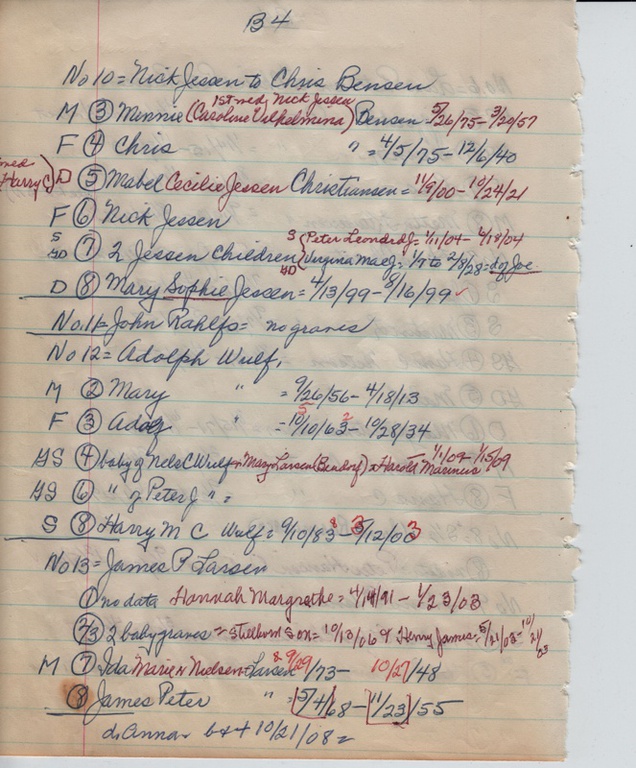 B4
No 10 = Nick Jessen to Chris Bensen
1st md. Nick Jessen
M ③ Minnie (Caroline Vilhelmina) Bensen = 5/26/75 - 3/20/57
F ④ Chris " = 4/5/75 - 12/6/40
Harry C) D ⑤ Mabel Cecilie Jessen Christiansen = 11/9/00 - 10/24/21
F ⑥ Nick Jessen
S S {Peter Leonded J = 1/11/04 - 4/18/04
GD ⑦ 2 Jessen Children GD {Virginia Mae J = 1/7 to 2/8/28 = d of Joe
D ⑧ Mary Sophie Jessen = 4/13/99 - 8/16/99 ✓
No. 11 = John Rahlfs = no graves
No 12 = Adolph Wulf,
M ② Mary " = 9/26/56 - 4/18/13
F ③ " = 10/10/63 - 10/28/34
GS ④ baby of Nels C Wulf + Mary Larsen (Bendorf) = Harold Marinus = 1/1/09 - 1/15/09
GS ⑥ " of Peter J " =
S ⑧ Harry M C Wulf = 9/10/83 - 3/12/03
No 13 = James P Larsen
① no data Hannah Margrethe = 4/14/91 - 1/23/03
2/3 2 baby graves = stillborn son = 10/13/06 & Henry James = 5/21/03 - 10/21/03
M ⑦ Ida Marie Nielsen Larsen 8 9/29/73 - 10/27/48
⑧ James Peter " = 5/4/68 - 11/23/55
d. Anna b & d 10/21/08 =